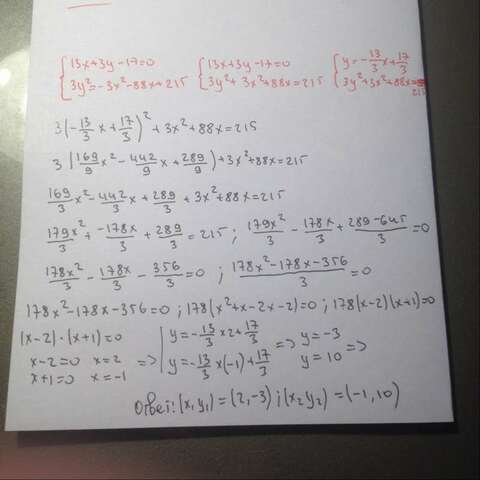 {13x+3y-17=0 {13x+3y-17=0 {y=-13/3x+17/3
{3y²=-3x²-88x+215 {3y²+3x²+88x=215 {3y²+3x²+88x=215
3(-13/3x+17/3)²+3x²+88x=215
3(169/9x²-442/9x+289/9)+3x²+88x=215
169/3x²-442/3x+289/3+3x²+88x=215
179x²/3+-178x/3+289/3=215; 179x²/3-178x/3+289-645/3=0
178x²/3-178x/3-356/3=0; 178x²-178x-356/3=0
178x²-178x-356=0; 178(x²+x-2x-2)=0; 178(x-2)(x+1)=0
(x-2)·(x+1)=0
x-2=0 x=2 => {y=-13/3×2+17/3 => y=-3
x+1=0 x=-1 {y=-13/3×(-1)+17/3 y=10 =>
Ответ: (x,y₁)=(2,-3); (x₂y₂)=(-1,10)